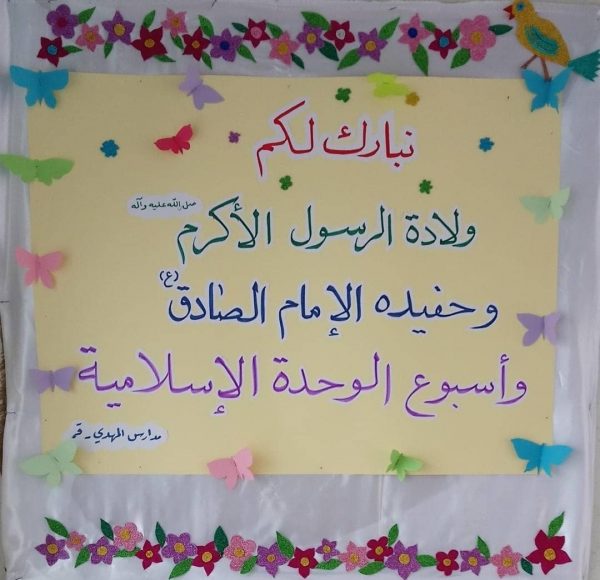 نبارك لكم
صلى الله عليه وآله
ولادة الرسول الأكرم
وحفيده الإمام الصادق (ع)
وأسبوع الوحدة الإسلامية
مدارس المهدي - قم